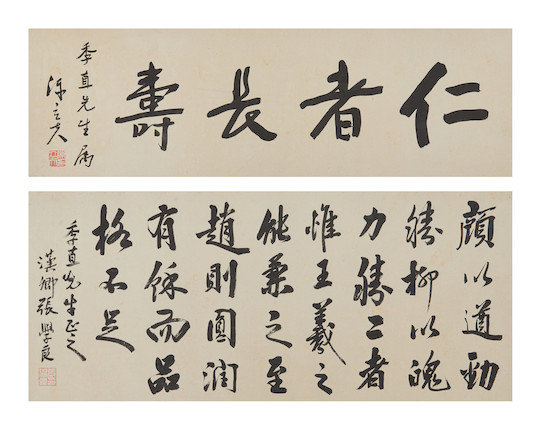 仁者長壽
季直先生属
陳立夫
顔以遒勁
勝柳以魄
力勝二者
惟王羲之
能兼之至
趙則圓潤
有餘而品
格不足
季直先生正之
漢卿張學良